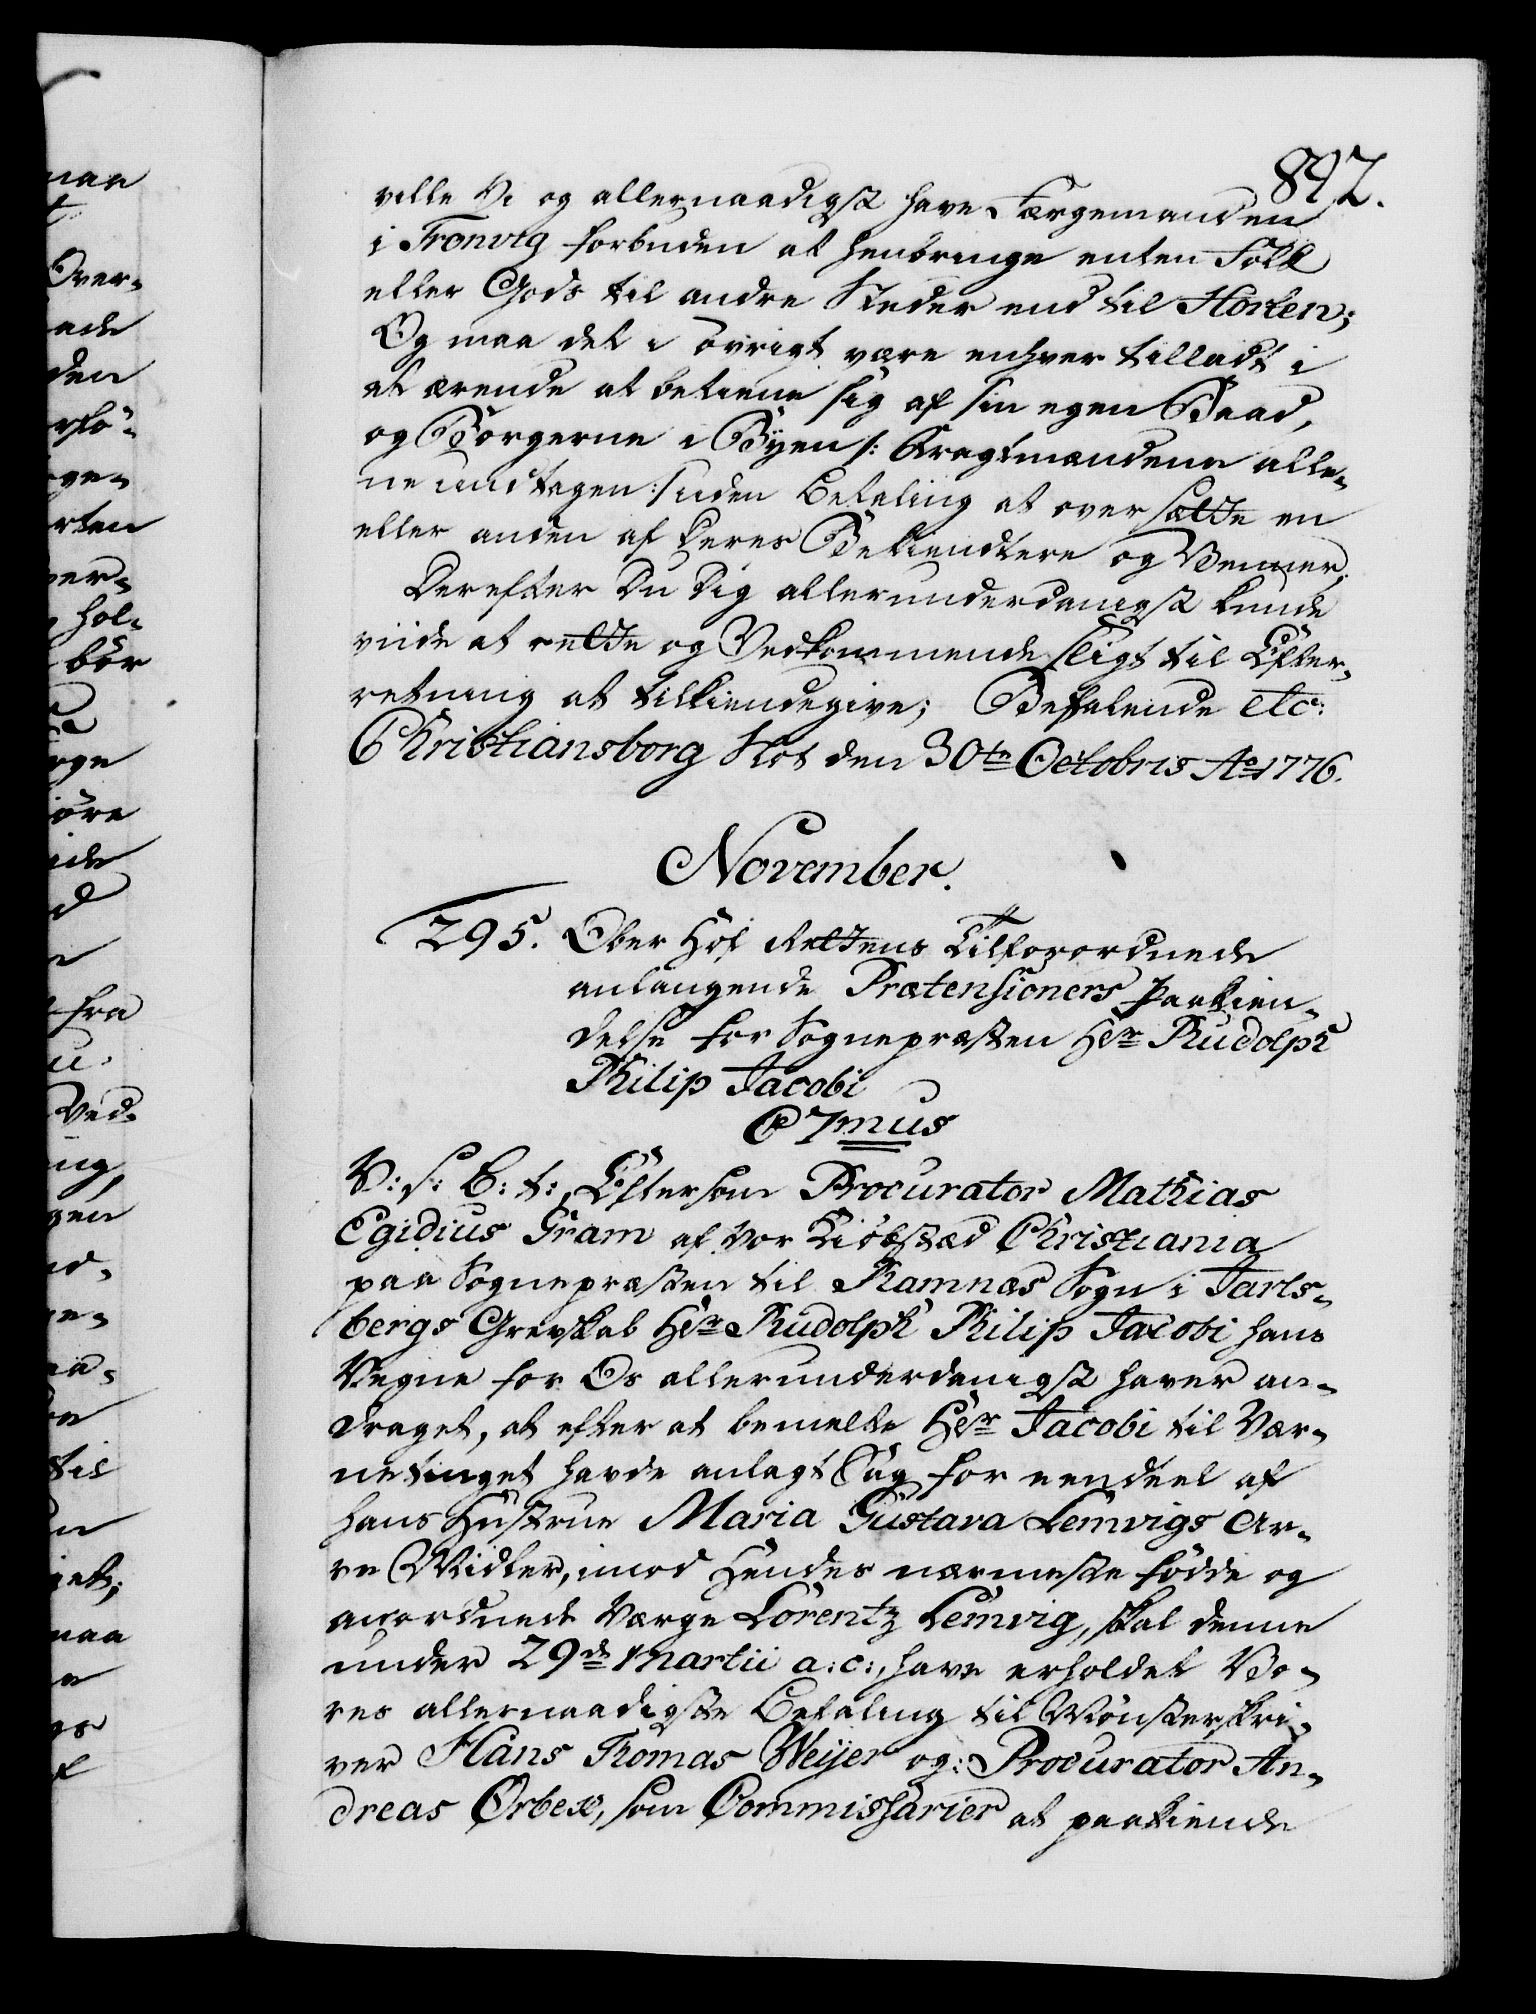 892.
ville Vi og allernaadigst have Færgemanden
i Tronvig forbuden at henbringe enten Folk
eller Gods til andre Steder end til Horten;
Og maa det i övrigt være enhver tilladt i
et ærende at betiene sig af sin egen Baad,
og Börgerne i Byen /: Fragtmændene alle-
ne undtagen :/ uden Betaling at oversætte en
eller anden af deres Bekiendtere og Venner.
Derefter Du Dig allerunderdanigst kunde
viide at rette og Vedkommende sligt til Efter-
retning at tilkiendegive; Befalende etc:
Christiansborg Slot den 30te Octobris Ao 1776.
November.
295. Ober Hof Rettens Tilforordnede
anlangende Prætensioners Paakien-
delse for Sognepræsten Hr Rudolph
Philip Jacobi
C 7mus
V: S: B: t:, Eftersom Procurator Mathias
Egidius Gram af Vor Kiöbstæd Christiania
paa Sognepræsten til Ramnæs Sogn i Jarls-
bergs Grevskab Hr Rudolph Philip Jacobi hans
Vegne for Os allerunderdanigst haver an-
draget, at efter at bemelte Hr Jacobi til Vær-
netinget havde anlagt Sag for eendeel af
hans Hustrue Maria Gustava Lemvigs Ar-
ve Midler, imod Hendes nærmeste födde og
anordnede Værge Lorentz Lemvig, skal denne
under 29de Martii a: c:, have erholdet Vo-
res allernaadigste Befaling til Mönsterskri-
ver Hans Thomas Weijer og: Procurator An-
dreas Orbex, som Commissarier at paakiende
nar
Over-
ade
den
ge-
rten
ver-
hol-
bör
öre
ide
d
fra
Ved-
ng,
gen
til
maa